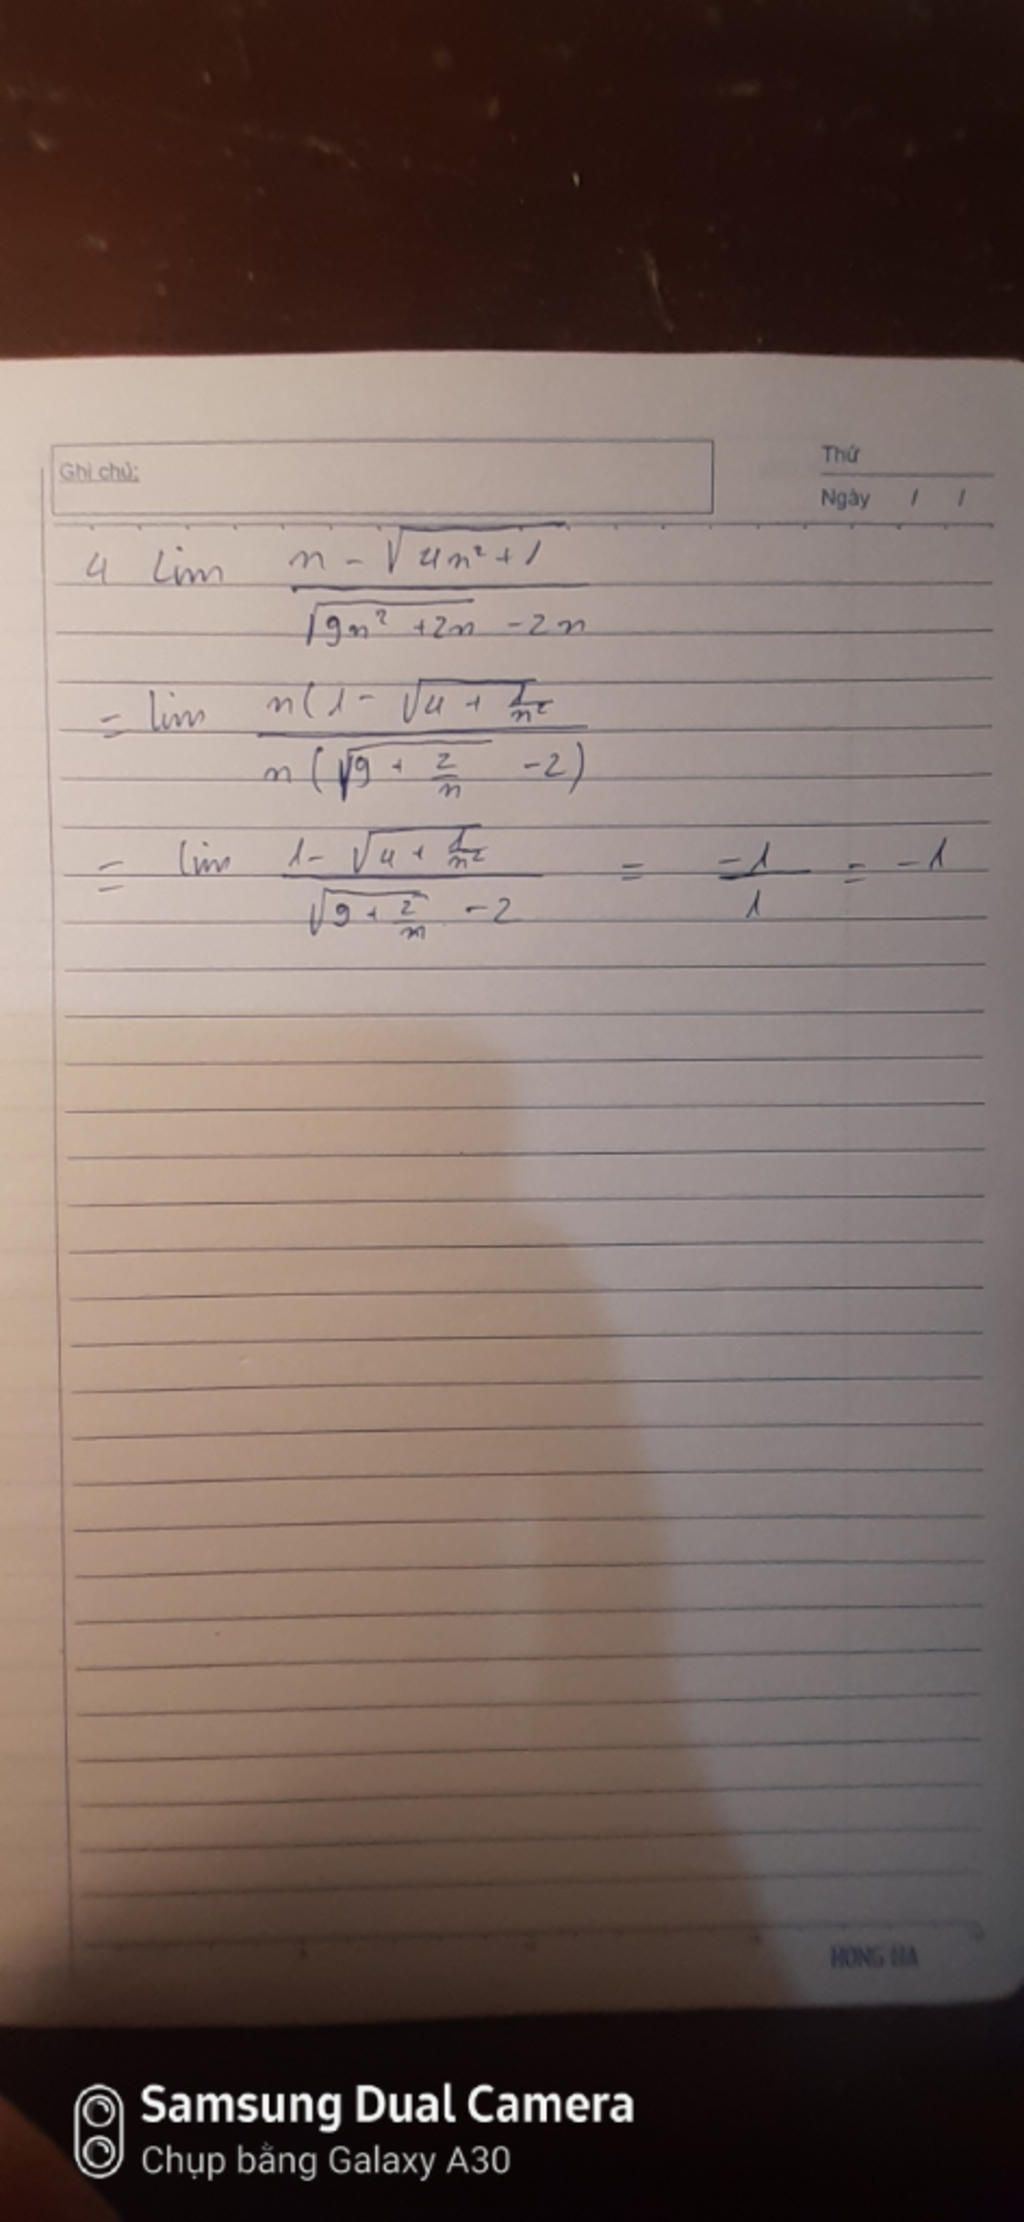 Ghi chú:
Thứ
Ngày / /
4 lim (n - √(4n² + 1)) / (√(9n² + 2n) - 2n)
= lim n(1 - √(4 + 1/n²) / n(√(9 + 2/n) - 2)
= lim (1 - √(4 + 1/n²)) / (√(9 + 2/n) - 2) = -1/1 = -1
HONG HA
Samsung Dual Camera
Chụp bằng Galaxy A30